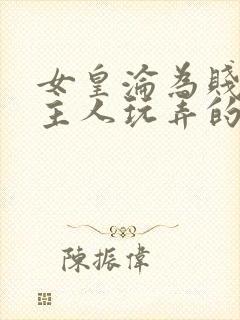 女皇淪為賤
主人玩弄的
陳振偉